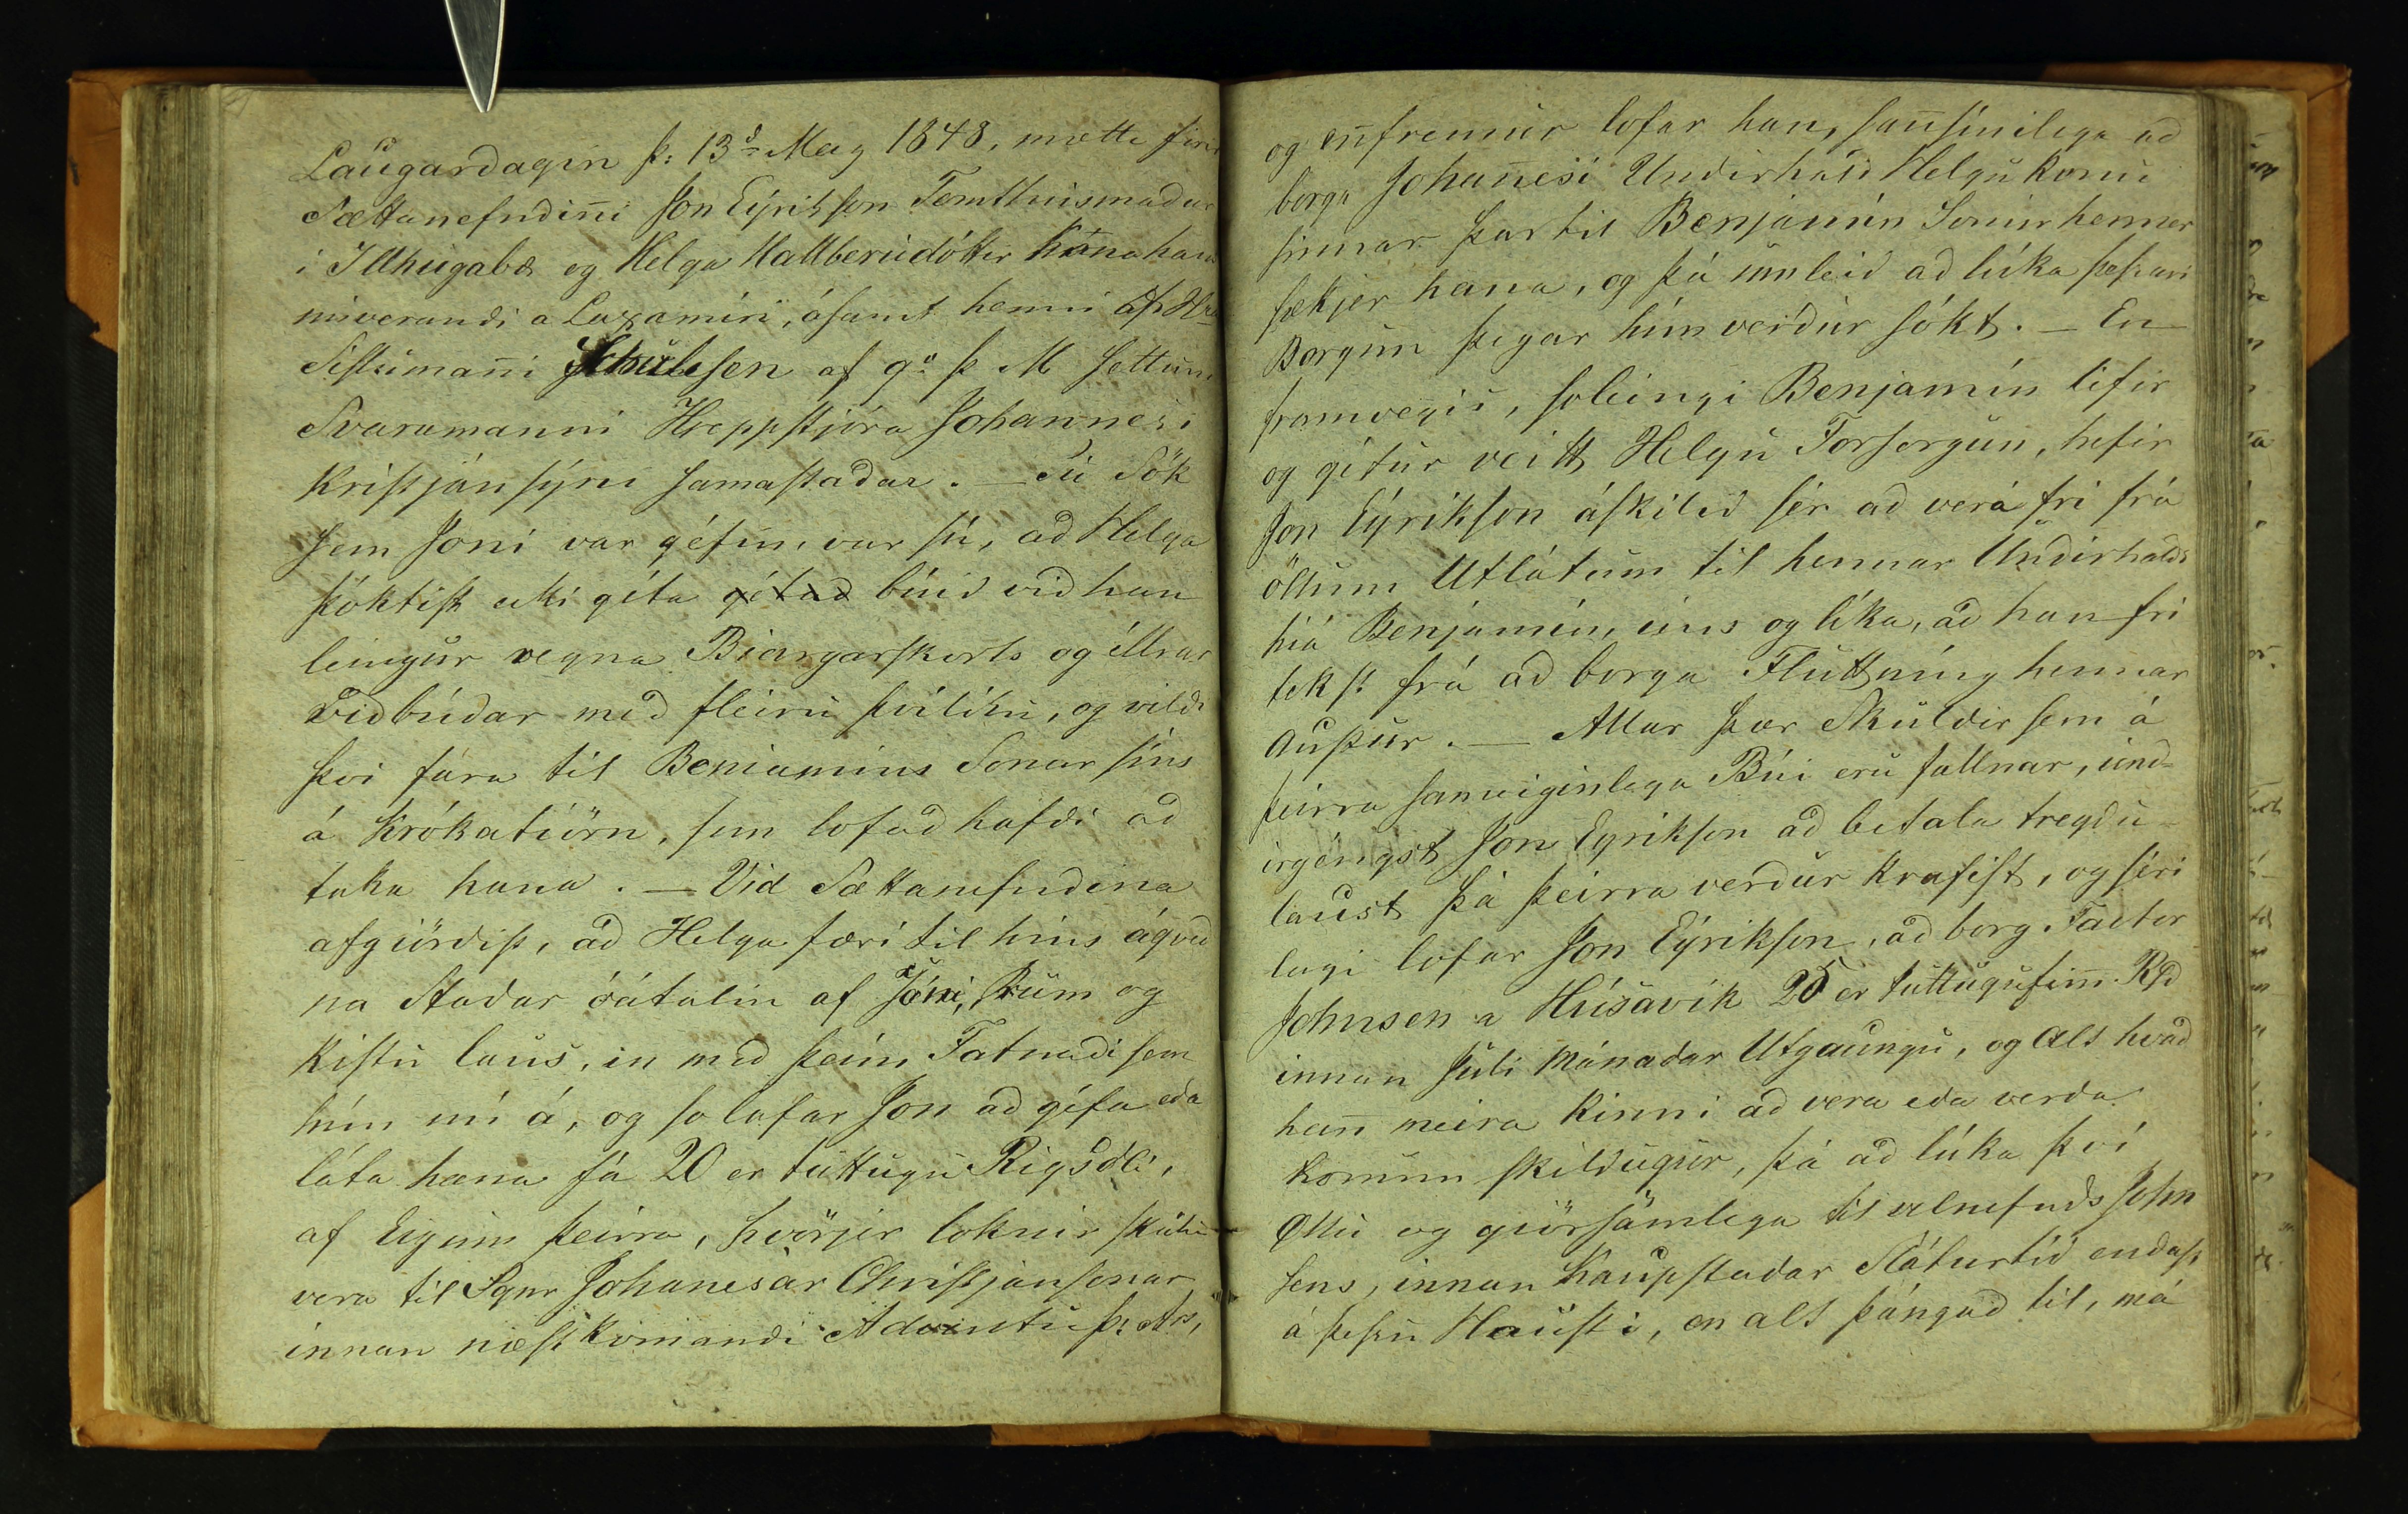 Laugardagin þ: 13da May 1848, mætte firir
Sættanefndini Jon Eyriksson Tomthusmadur
i Illhugabæ og Helga Hallberudóttir Kona hans
nuverandi a Laxamiri, ásamt henni af Hr
Sislumanni Schulesen af 9a þ M settum
Svaramanni Hreppstjóra Johannesi
Kristjánssýni samastadar. — Sú Sök
sem Joni var géfin, var sú, ad Helga
þóktist ecki géta búid vid han
leingur vegna Biargarskorts og illrar
vidbúdar med fleiru þvílíku, og vildi
þvi fara til Beniamins Sonar síns
á Krókatiörn, sem lofad hafdi ad
taka hana. — Vid Sættanefndena
afgiördist, ad Helga færi til hins ágved
na Stadar óátalin af Jóni, Rúm og
Kistu laus, en med þeim Fatnadi sem
hún nú á, og so lofar Jon ad géfa eda
láta hana fá 20 er tuttugu Rigsdli,
af Eigum þeirra, hvörjir loknir skulu
vera til Sgnr Johanesar Christjánssonar
innan næstkomandi Adventu þ: Ars,
og enfremur lofar han, sannsínilega ad
borga Johanesi Undirhald Helgu Konu
sinnar þar til Benjamín Sonur hennar
sækjer hana, og þá umleid ad lúka þessari
Borgun þegar hún verdur sókt. — En
framvegis, soleingi Benjamín lifir
og gétur veitt Helgu Forsorgun, hefir
Jon Eyriksson áskilid sér ad vera fri frá
öllum Utlátum til hennar Undirhalds
hiá Benjamín, eins og líka, ad han fri
tekst frá ad borga Fluttning hennar
Austur. — Allar þær Skuldir sem á
þeirra sameiginlega Búi eru fallnar, und-
irgéngst Jon Eyriksson ad betala tregdu-
laust þá þeirra verdur krafist, og síri
lagi lofar Jon Eyriksson, ad borg. Factor
Johnsen a Húsavik 25 er tuttugufim Rbd
innan Juli Mánadar Utgaungu, og alt hvad
han meira kinni ad vera eda verda
honum skildugur, þá ad lúka því
öllu og giörsamlega til velnefnds John
sens, innan Kaupstadar Sláturtíd endast
á þessu Hausti, en alt þángad til, má